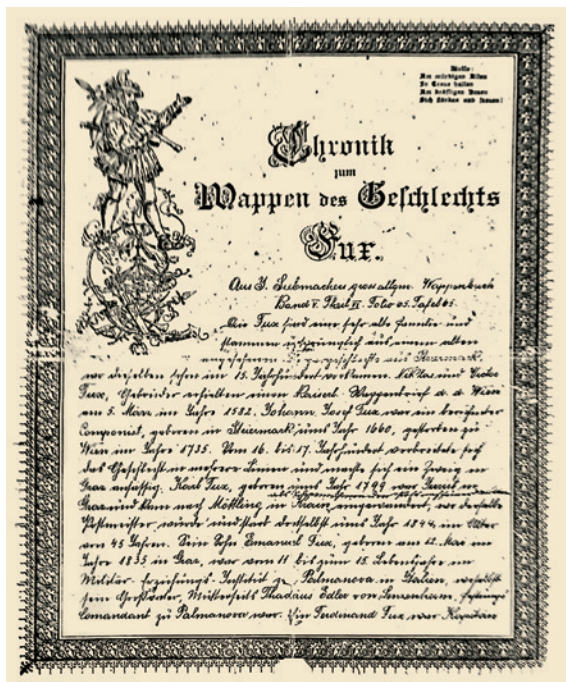 Motto:
Am würdigen Alten
In Treue halten
Am kräftigen Neuen
Sich stärken und freuen!
Chronik
zum
Wappen des Geschlechts
Fux.
Aus J. Siebmachers gross allgm. Wappenbuch
Band V. Theil VI. Folio 65. Tafel 65.
Die Fux sind eine sehr alte Familie und
stammen ursprünglich aus einem alten
angesehenen aus Steiermark,
wo dieselben schon im 15. Jahrhundert vorkamen. Niklas und Victor
Fux, Gebrüder erhielten einen Kaiserl. Wappenbrief d. d. Wien
am 5. März im Jahre 1582. Johann Josef Fux war ein berühmter
Componist, geboren in Steiermark ums Jahr 1660, gestorben zu
Wien im Jahre 1735. Vom 16. bis 17. Jahrhundert verbreitete sich
das Geschlecht in mehrere Linien und machte sich ein Zweig in
Graz ansässig. Karl Fux, geboren ums Jahr 1799 war in
als
Graz und kam nach Möttling in Krain eingewandert, wo derselbe
Postmeister wurde und starb derselbst ums Jahr 1844, im Alter
von 45 Jahren. Sein Sohn Emanuel Fux, geboren am 12. Mai im
Jahre 1835 in Graz, war vom 11 bis zum 15. Lebensjahre im
Militär-Erziehungs-Institut zu Palmanova in Italien, woselbst
sein Großvater, Mütterseits Thadäus Edler von
Comandant zu Palmanova war. Ein Ferdinand Fux war Kapitän